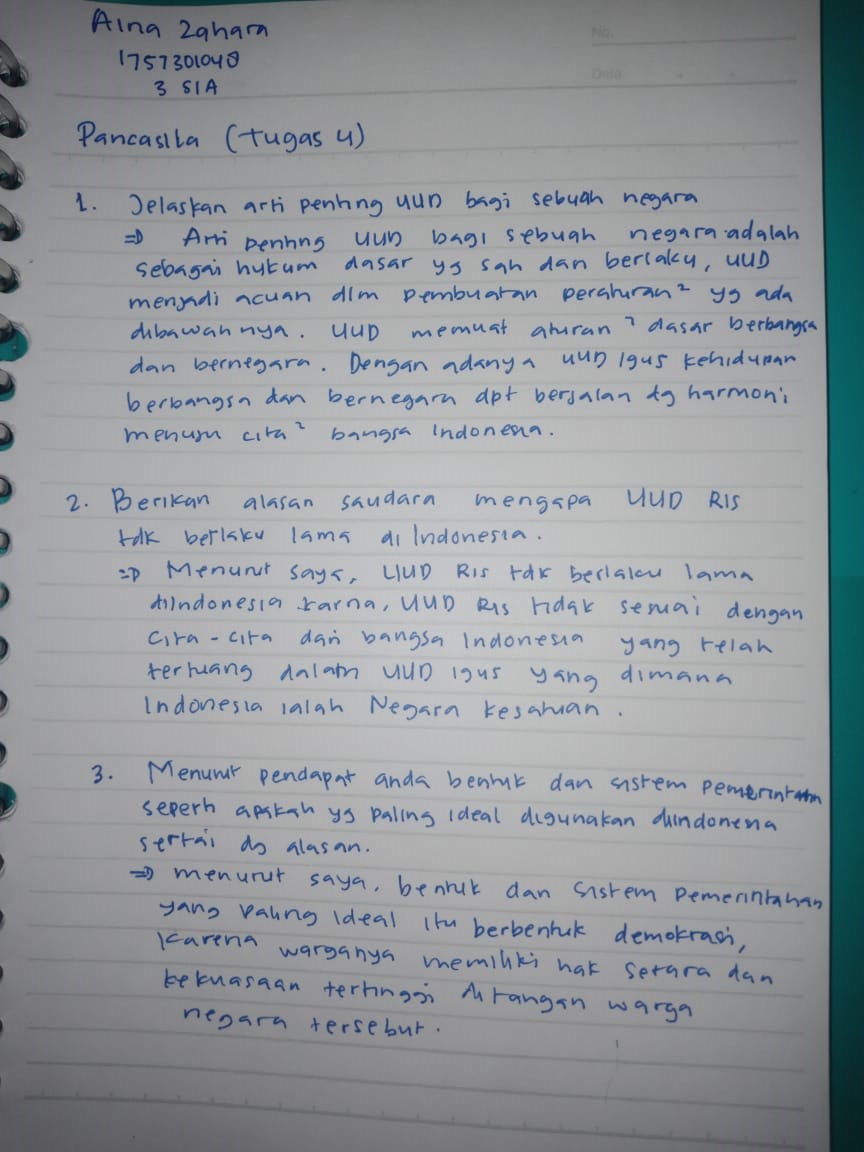 Aina Zahara
No.
1757301040
Date
3 SIA
Pancasila (Tugas 4)
1. Jelaskan arti penting UUD bagi sebuah negara
⇒ Arti penting UUD bagi sebuah negara adalah
sebagai hukum dasar yg sah dan berlaku, UUD
menjadi acuan dlm pembuatan peraturan² yg ada
dibawahnya. UUD memuat aturan² dasar berbangsa
dan bernegara. Dengan adanya UUD 1945 kehidupan
berbangsa dan bernegara dpt berjalan dg harmoni
menuju cita² bangsa Indonesia.
2. Berikan alasan saudara mengapa UUD RIS
tdk berlaku lama di Indonesia.
⇒ Menurut saya, UUD RIS tdk berlaku lama
diIndonesia karna, UUD RIS tidak sesuai dengan
cita-cita dari bangsa Indonesia yang telah
tertuang dalam UUD 1945 yang dimana
Indonesia ialah Negara Kesatuan.
3. Menurut pendapat anda bentuk dan sistem pemerintahan
seperti apakah yg paling ideal digunakan diindonesia
sertai dg alasan.
⇒ menurut saya, bentuk dan sistem pemerintahan
yang paling ideal itu berbentuk demokrasi,
Karena warganya memiliki hak setara dan
kekuasaan tertinggi di tangan warga
negara tersebut.